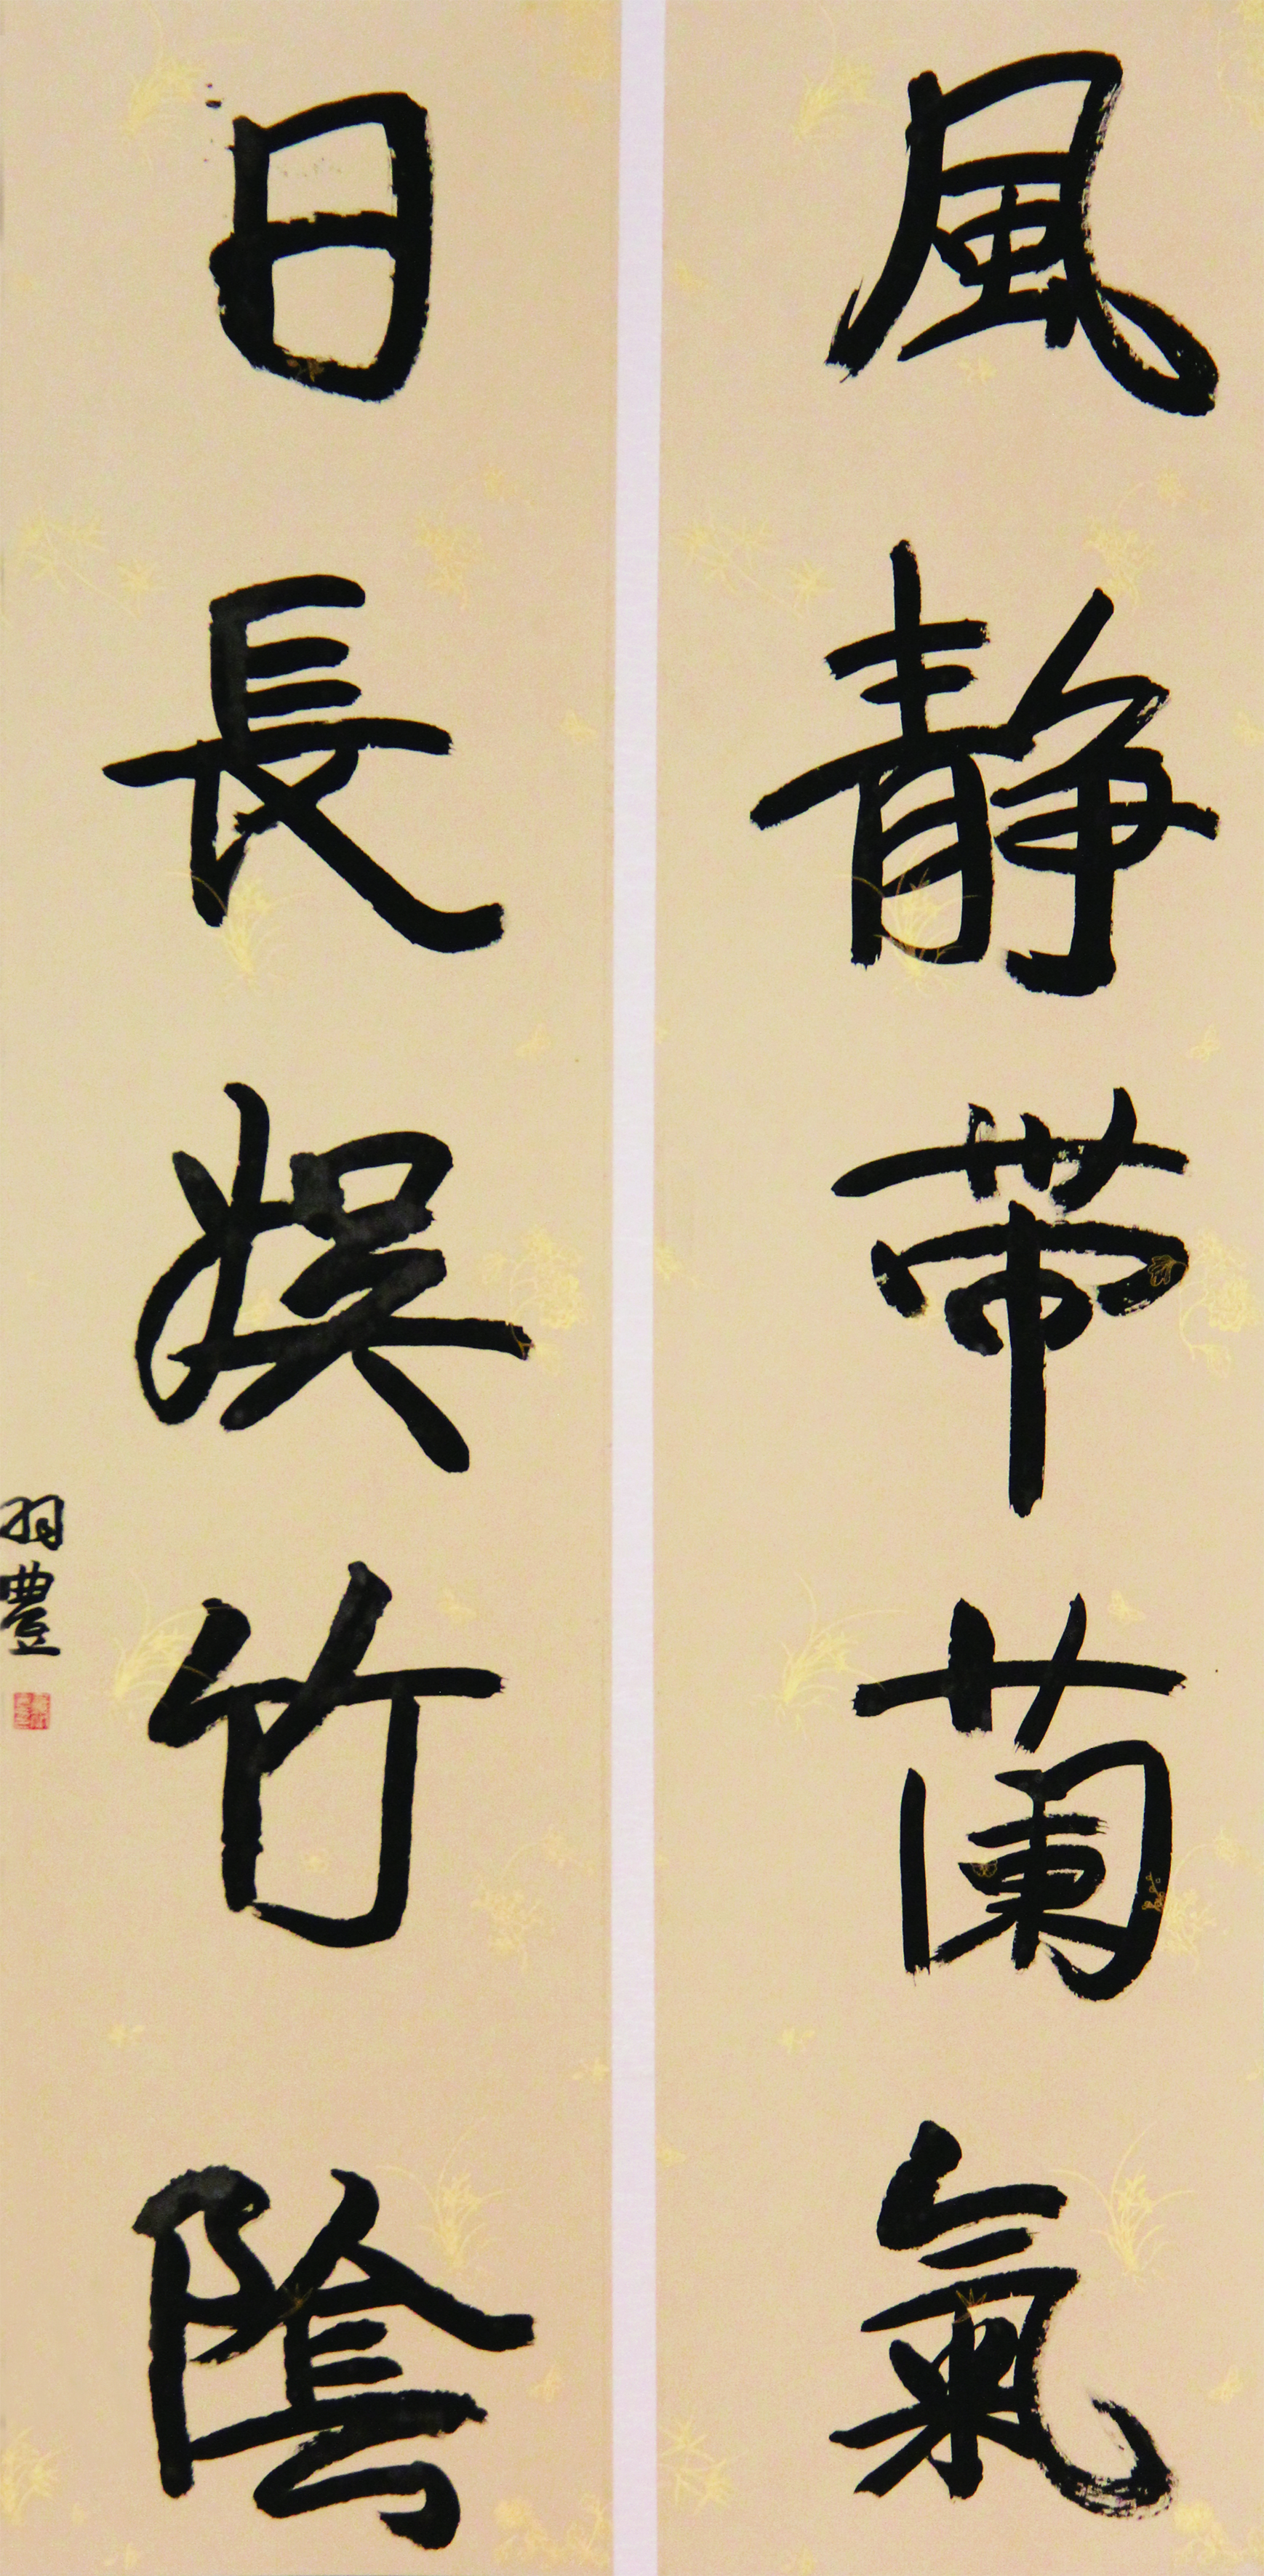 風静带蘭氣
日長娛竹陰
羽豐